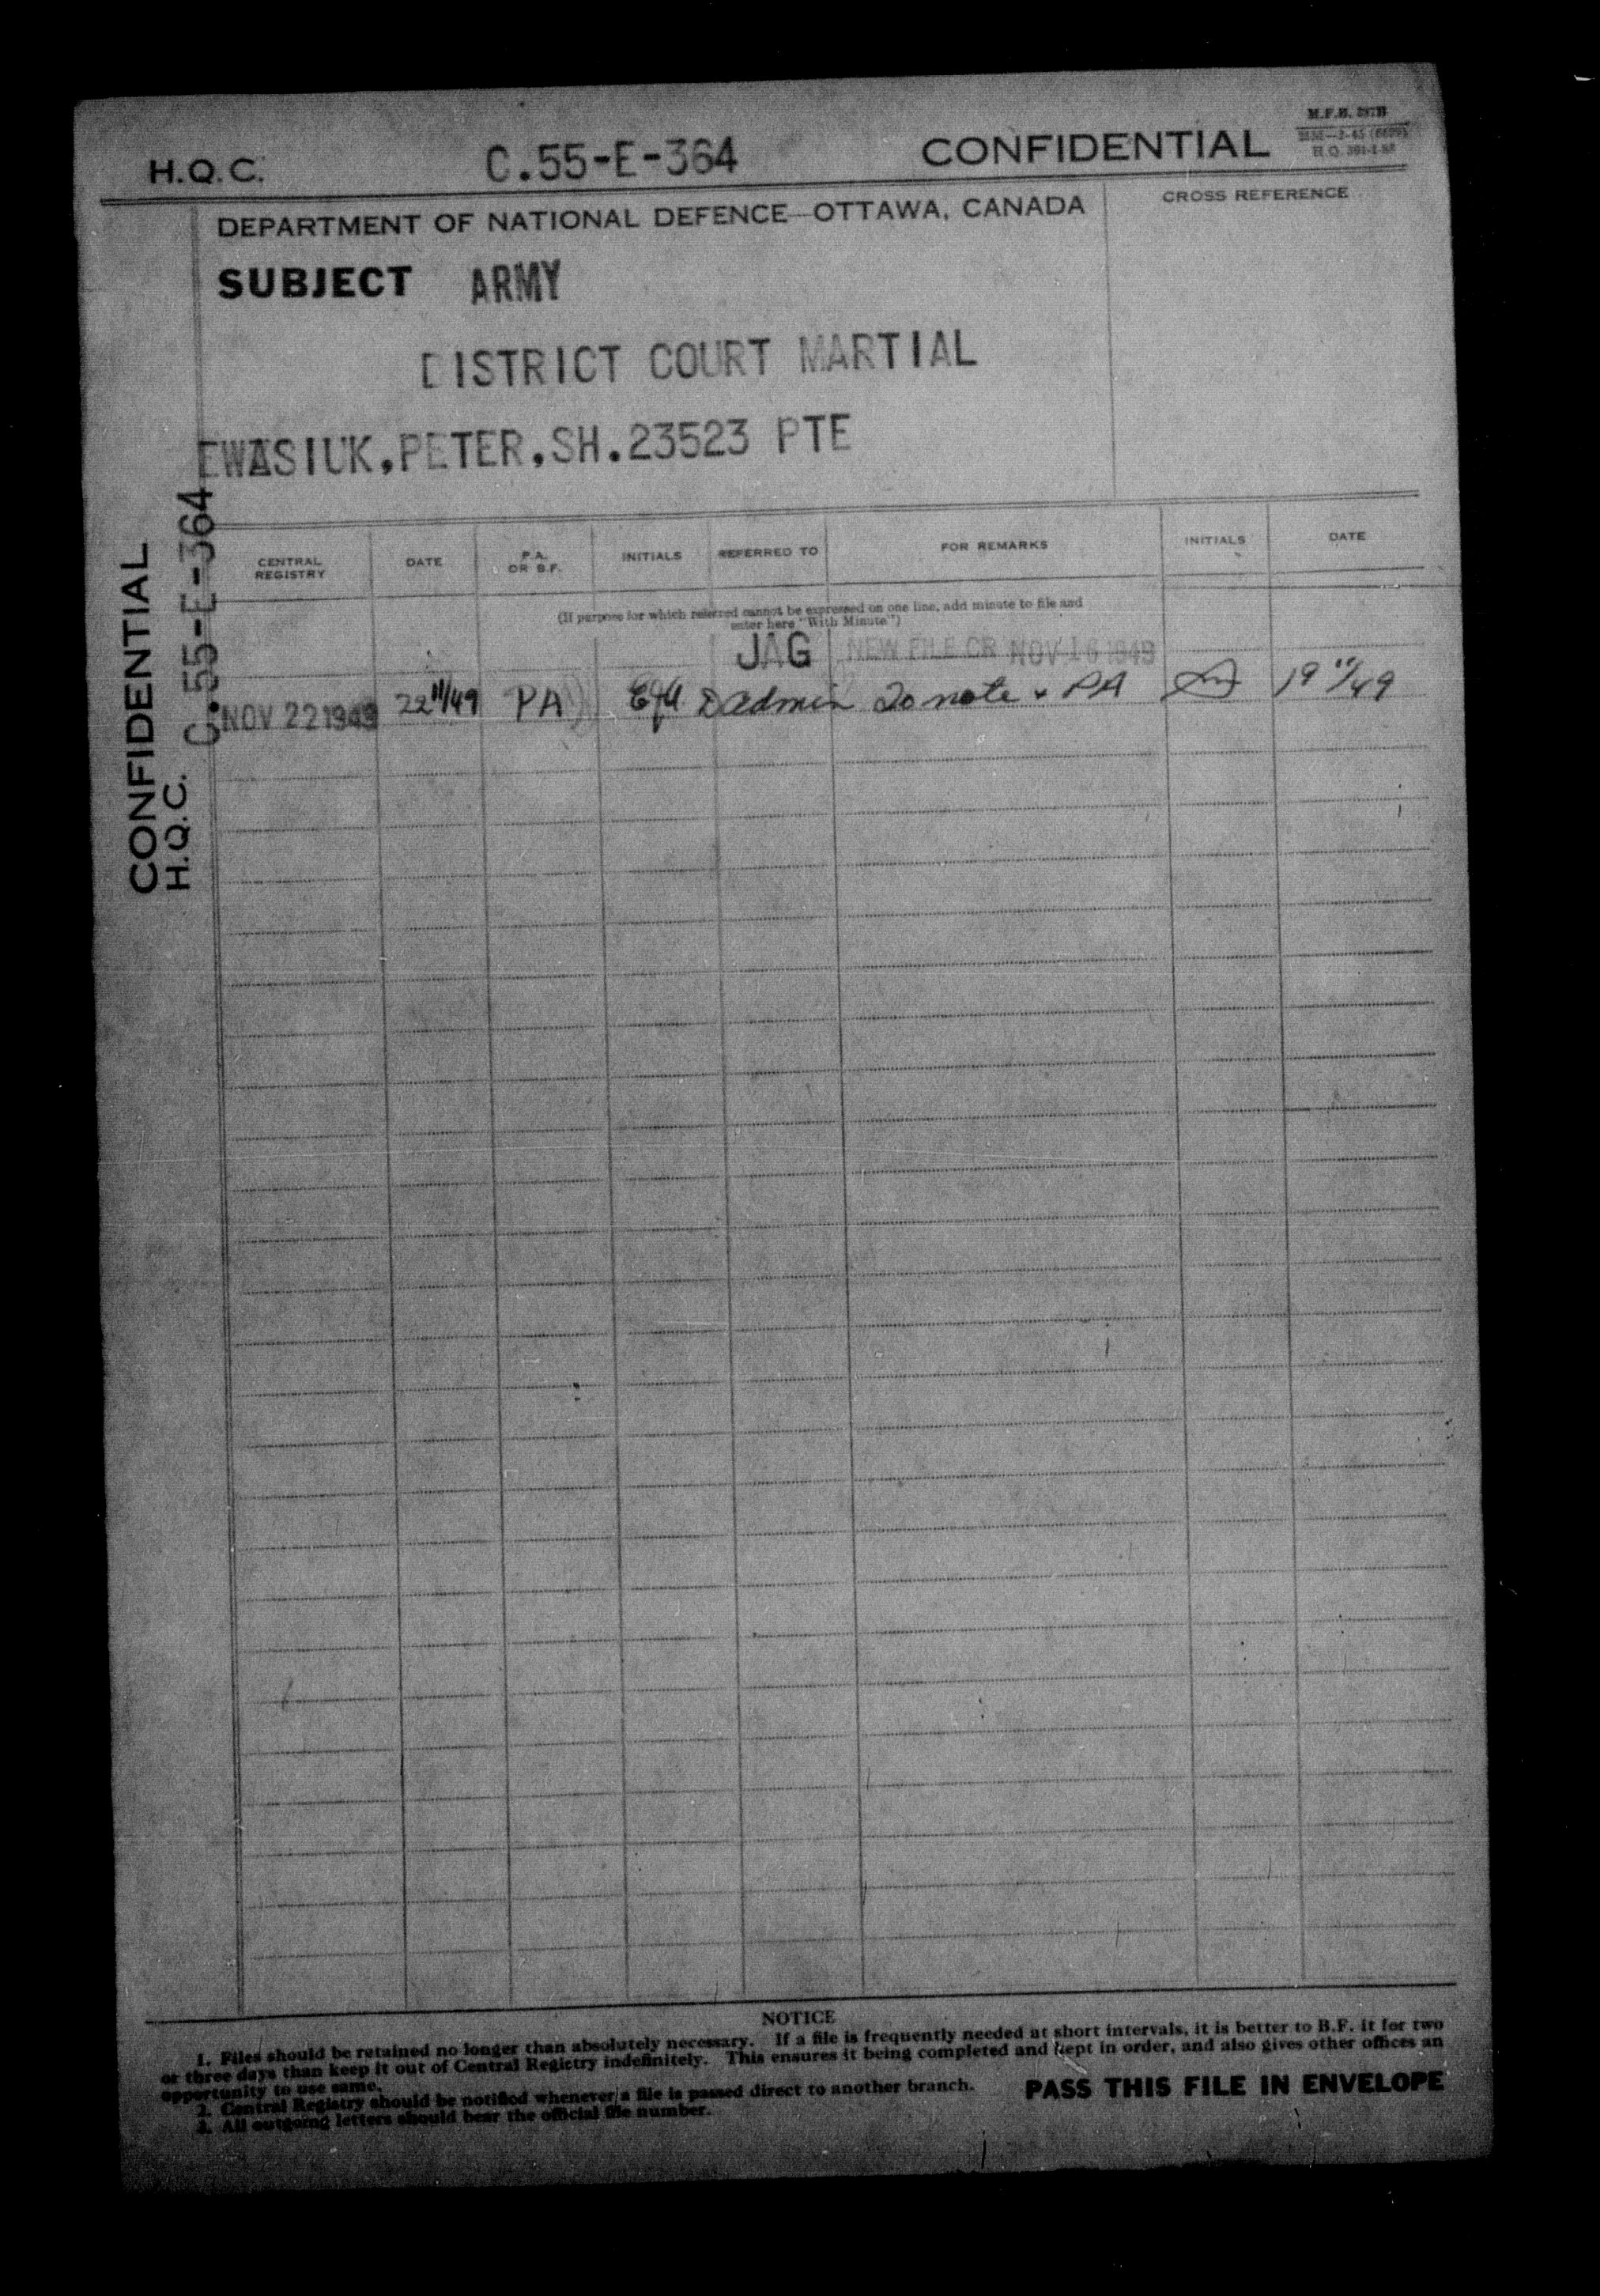 M.F.B.
H.Q.C. C.55-E-364 CONFIDENTIAL
DEPARTMENT OF NATIONAL DEFENCE—OTTAWA, CANADA
CROSS REFERENCE
SUBJECT ARMY
DISTRICT COURT MARTIAL
EWASIUK,PETER,SH.23523 PTE
CONFIDENTIAL
H.Q.C. C.55-E-364
CENTRAL REGISTRY DATE P.A. OR B.F. INITIALS REFERRED TO FOR REMARKS INITIALS DATE
(If purpose for which referred cannot be expressed on one line, add minute to file and
enter here "With Minute")
JAG NEW FILE CR NOV 16 1949
NOV 22 1949 22 11/49 PA D admin To note & PA 19 11/49
NOTICE
1. Files should be retained no longer than absolutely necessary. If a file is frequently needed at short intervals, it is better to B.F. it for two
or three days than keep it out of Central Registry indefinitely. This ensures it being completed and kept in order, and also gives other offices an
opportunity to use same.
2. Central Registry should be notified whenever a file is passed direct to another branch.
3. All outgoing letters should bear the official file number.
PASS THIS FILE IN ENVELOPE